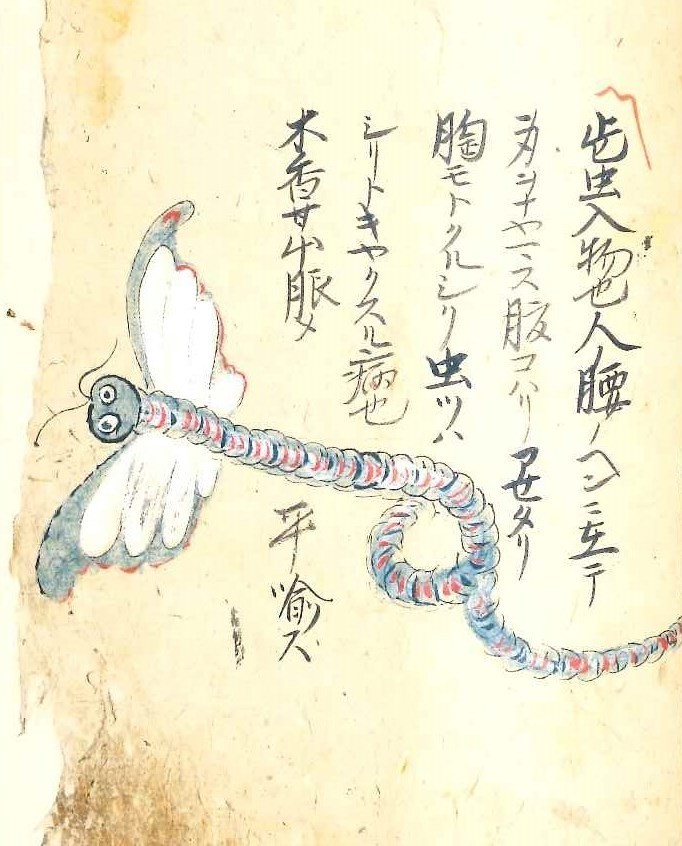 此虫入物也人腰ノヘンニ在テ
ナヤマス腹コハリアセタリ
胸モトクルシリ虫ツハ
シリトキヤクスル病也
木香甘 平喩ス